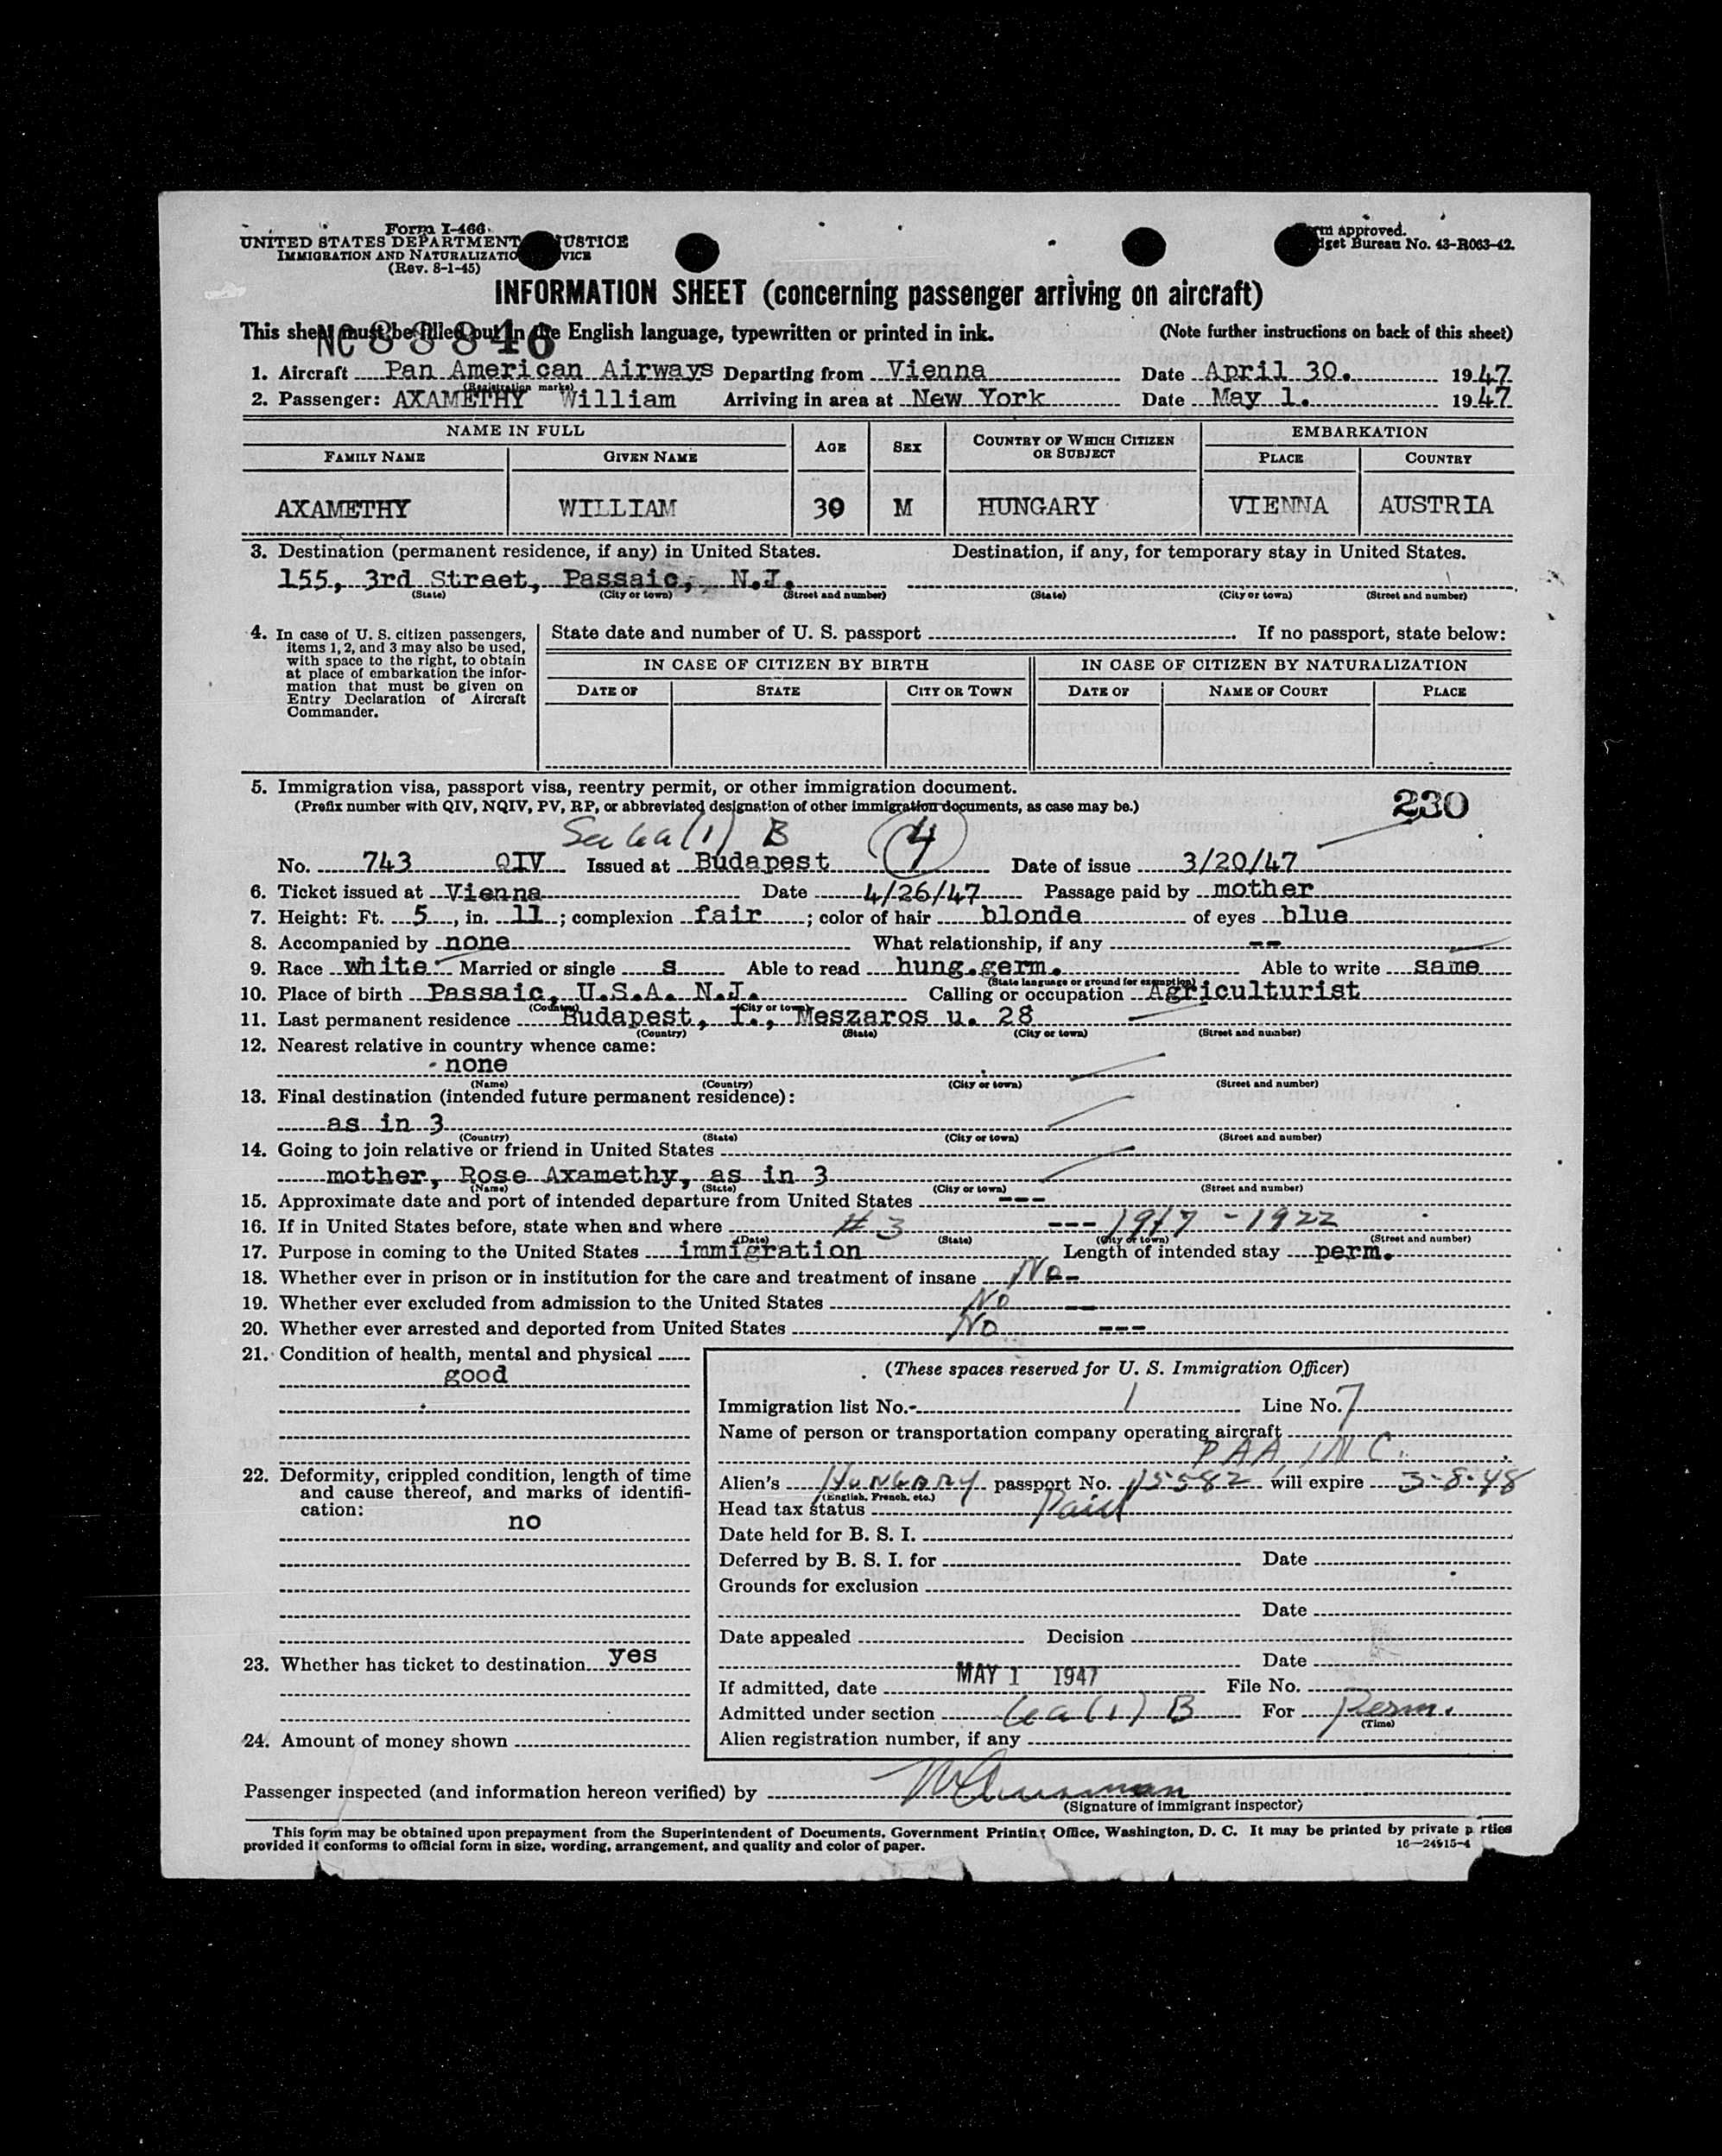 Form I-466
UNITED STATES DEPARTMENT JUSTICE
IMMIGRATION AND NATURALIZATIO VICE
(Rev. 8-1-45)
rm approved.
dget Bureau No. 43-R063-42.
INFORMATION SHEET (concerning passenger arriving on aircraft)
This sheet must be filled out in the English language, typewritten or printed in ink. (Note further instructions on back of this sheet)
NC 88846
1. Aircraft Pan American Airways Departing from Vienna Date April 30. 1947
(Registration marks)
2. Passenger: AXAMETHY William Arriving in area at New York Date May 1. 1947
NAME IN FULL AGE SEX COUNTRY OF WHICH CITIZEN OR SUBJECT EMBARKATION
FAMILY NAME GIVEN NAME PLACE COUNTRY
AXAMETHY WILLIAM 30 M HUNGARY VIENNA AUSTRIA
3. Destination (permanent residence, if any) in United States. Destination, if any, for temporary stay in United States.
155, 3rd Street, Passaic, N.J.
(State) (City or town) (Street and number) (State) (City or town) (Street and number)
4. In case of U. S. citizen passengers, items 1, 2, and 3 may also be used, with space to the right, to obtain at place of embarkation the information that must be given on Entry Declaration of Aircraft Commander.
State date and number of U. S. passport If no passport, state below:
IN CASE OF CITIZEN BY BIRTH IN CASE OF CITIZEN BY NATURALIZATION
DATE OF STATE CITY OR TOWN DATE OF NAME OF COURT PLACE
5. Immigration visa, passport visa, reentry permit, or other immigration document.
(Prefix number with QIV, NQIV, PV, RP, or abbreviated designation of other immigration documents, as case may be.) 230
Sec 6a(1) B 4
No. 743 QIV Issued at Budapest Date of issue 3/20/47
6. Ticket issued at Vienna Date 4/26/47 Passage paid by mother
7. Height: Ft. 5, in. 11; complexion fair; color of hair blonde of eyes blue
8. Accompanied by none What relationship, if any --
9. Race white Married or single s Able to read hung.germ. Able to write same
(State language or ground for exemption)
10. Place of birth Passaic, U.S.A. N.J. Calling or occupation Agriculturist
(Country) (City or town)
11. Last permanent residence Budapest, I., Meszaros u. 28
(Country) (State) (City or town) (Street and number)
12. Nearest relative in country whence came:
none
(Name) (Country) (City or town) (Street and number)
13. Final destination (intended future permanent residence):
as in 3
(Country) (State) (City or town) (Street and number)
14. Going to join relative or friend in United States
mother, Rose Axamethy, as in 3
(Name) (State) (City or town) (Street and number)
15. Approximate date and port of intended departure from United States ---
16. If in United States before, state when and where # 3 --- 1917 - 1922
(Date) (State) (City or town) (Street and number)
17. Purpose in coming to the United States immigration Length of intended stay perm.
18. Whether ever in prison or in institution for the care and treatment of insane No --
19. Whether ever excluded from admission to the United States No --
20. Whether ever arrested and deported from United States No ---
21. Condition of health, mental and physical
good
22. Deformity, crippled condition, length of time and cause thereof, and marks of identification:
no
23. Whether has ticket to destination yes
24. Amount of money shown
(These spaces reserved for U. S. Immigration Officer)
Immigration list No. 1 Line No. 7
Name of person or transportation company operating aircraft
PAA, INC.
Alien's Hungary passport No. 15582 will expire 3-8-48
(English, French, etc.)
Head tax status Paid
Date held for B. S. I.
Deferred by B. S. I. for Date
Grounds for exclusion
Date
Date appealed Decision
Date
If admitted, date MAY 1 1947 File No.
Admitted under section 6a(1) B For Perm.
(Time)
Alien registration number, if any
Passenger inspected (and information hereon verified) by
(Signature of immigrant inspector)
This form may be obtained upon prepayment from the Superintendent of Documents, Government Printing Office, Washington, D. C. It may be printed by private parties
provided it conforms to official form in size, wording, arrangement, and quality and color of paper. 16—24915-4